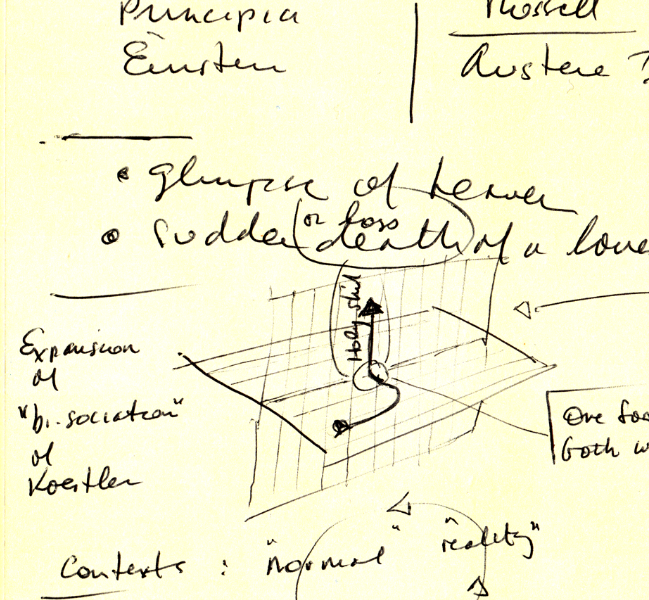 Principia
Einstein
Russell
Austere ?
• Glimpse of heaven
or loss
• Sudden death of a love
Holy shit
Expansion
of
"bi-sociation"
of
Koestler
One foo
both w
Contexts : "normal" "reality"